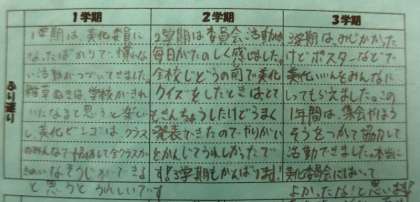 1学期
2学期
3学期
ふり返り
1学期は、美化委員に
なったばかりで、慣れな
い活動がつづいてきました。
雑草ぬきは、学校がきれ
いになると思うと楽し
し美化ビンゴは、クラス
のみんなで協力して全クラスが
きれいなそうじができる
と思うとうれしいです
2学期は委員会活動が
毎日がたのしく感じました。
全校じどうの前で美化
クイズをしたときはとて
もきんちょうしたけどろまく
発表できたのでやりがい
をかんじてうれしかったで
す!3学期もがんばります!
3学期はみじかかった
けどポスターなどで
美化いいんをみんなに
してもらえました。この
1年間は、集会やはる
そうをつかて協力して
活動できました。本当に
美化委員会にはいって
よかったな!と思います